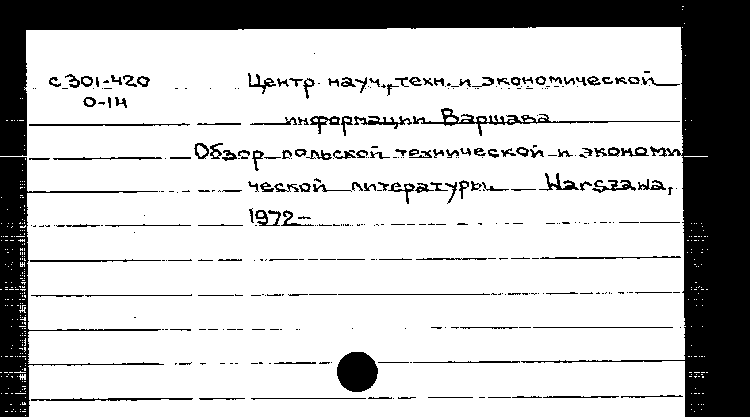 с 301-420
0-14
Центр науч., техн. и экономической
информации Варшава
Обзор польской технической и экономи
ческой литературы. Warszawa,
1972-